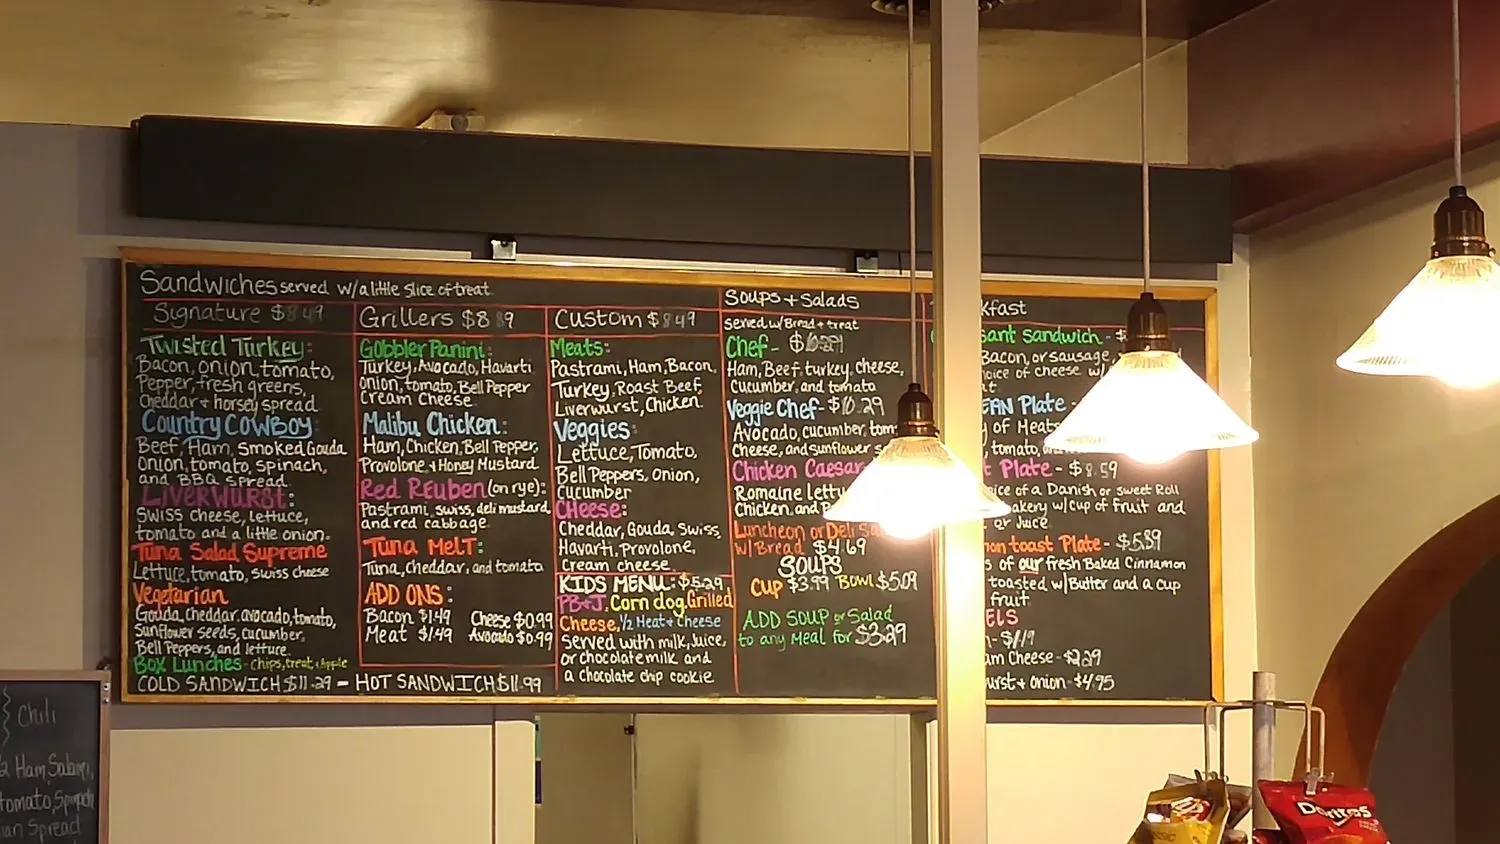 Sandwiches served w/a little slice of treat
Signature $8.49
Twisted Turkey:
Bacon, onion, tomato,
Pepper, fresh greens,
Cheddar + horsey spread
Country Cowboy:
Beef, Ham, Smoked Gouda
Onion, tomato, spinach,
and BBQ spread.
Liverwurst:
Swiss cheese, lettuce,
tomato and a little onion.
Tuna Salad Supreme
Lettuce, tomato, swiss cheese
Vegetarian
Gouda, cheddar, avocado, tomato,
Sunflower seeds, cucumber,
Bell Peppers, and lettuce.
Box Lunches - chips, treat, + Apple
COLD SANDWICH $11.29 - HOT SANDWICH $11.99
Grillers $8.89
Gobbler Panini:
Turkey, Avocado, Havarti
onion, tomato, Bell Pepper
Cream Cheese
Malibu Chicken:
Ham, Chicken, Bell Pepper,
Provolone, + Honey Mustard
Red Reuben (on rye):
Pastrami, swiss, deli mustard,
and red cabbage
Tuna Melt:
Tuna, cheddar, and tomato
ADD ONS:
Bacon $1.49 Cheese $0.99
Meat $1.49 Avocado $0.99
Custom $8.49
Meats:
Pastrami, Ham, Bacon,
Turkey, Roast Beef,
Liverwurst, Chicken.
Veggies:
Lettuce, Tomato,
Bell Peppers, Onion,
Cucumber
Cheese:
Cheddar, Gouda, Swiss,
Havarti, Provolone,
Cream cheese
KIDS MENU: $5.29,
PB+J, Corn dog, Grilled
Cheese, 1/2 Meat + Cheese
Served with milk, juice,
or chocolate milk and
a chocolate chip cookie.
Soups + Salads
served w/ Bread + treat
Chef - $10.29
Ham, Beef, turkey, cheese,
cucumber, and tomato
Veggie Chef - $10.29
Avocado, cucumber, tom
Cheese, and sunflower s
Chicken Caesar
Romaine lettu
Chicken, and
Luncheon or Deli Sa
w/ Bread $4.69
SOUPS
Cup $3.99 Bowl $5.09
ADD SOUP or Salad
to any Meal for $3.29
kfast
sant sandwich - $
Bacon, or sausage,
oice of cheese w/
t
EAN Plate -
y of Meats
, tomato, an
t Plate - $8.59
oice of a Danish or sweet Roll
akery w/ cup of fruit and
or Juice
non toast Plate - $5.89
s of our fresh Baked Cinnamon
toasted w/ Butter and a cup
fruit
ELS
n - $1.19
am Cheese - $2.29
urst + onion - $4.95
Chili
2 Ham, Salami,
tomato, Spinach
ian Spread
Doritos